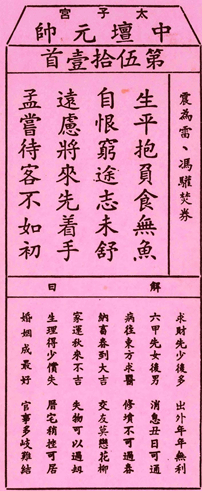 太子宮
中壇元帥
第伍拾壹首
震為雷、馮驩焚券
生平抱負食無魚
自恨窮途志未舒
遠慮將來先着手
孟嘗待客不如初
解曰
求財先少後多 出外年年無利
六甲先女後男 消息丑日可通
病往東方求醫 修墳不可過春
納畜春到大吉 交友莫戀花柳
家運秋來不吉 失物可以過
生理得少償失 厝宅稍可居
婚姻成最好 官事多岐難結